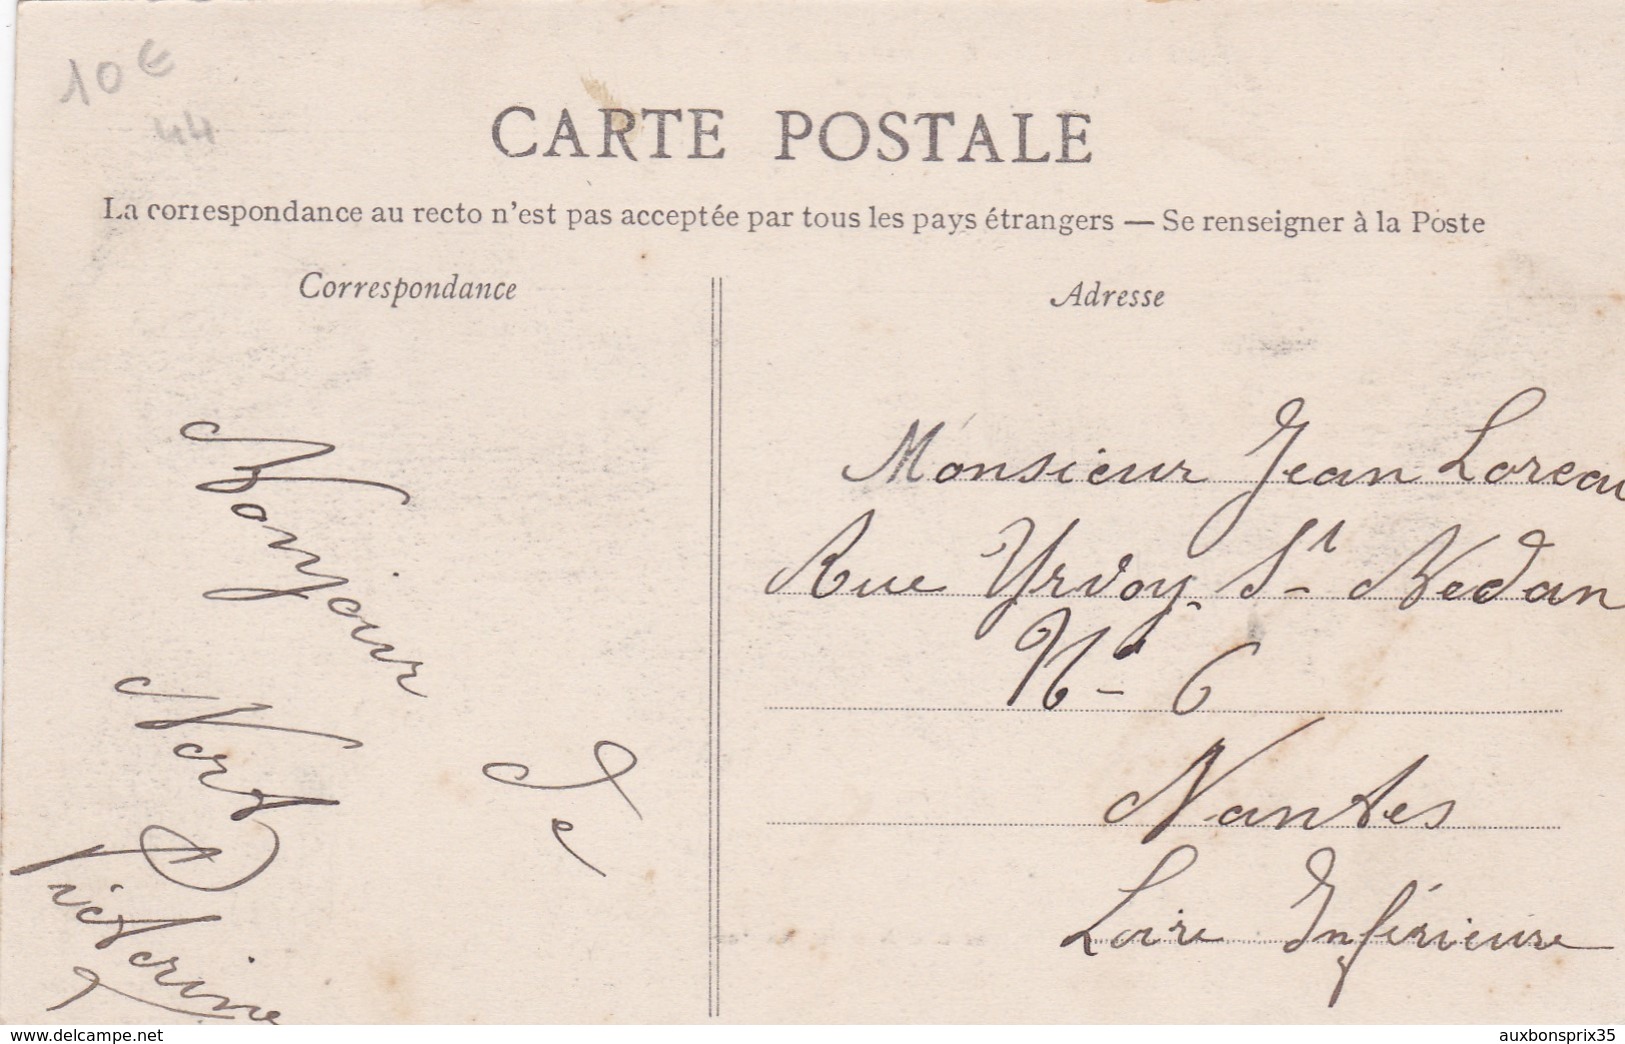 10 €
44
CARTE POSTALE
La correspondance au recto n'est pas acceptée par tous les pays étrangers — Se renseigner à la Poste
Correspondance
Adresse
Bonjour
de
Nort
Victorine
Monsieur Jean Loreau
Rue Yrvoy St Nedan
No 6
Nantes
Loire Inférieure
www.delcampe.net
auxbonsprix35